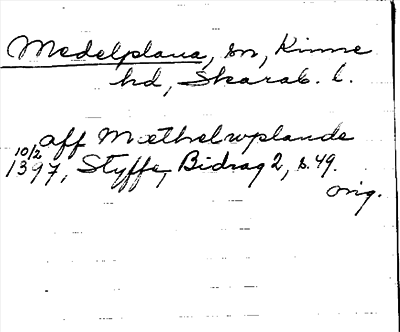 Medelplana, sn, Kinne
hd, Skarab. l.
aff Mæthelwplande
10/2 1397, Styffe, Bidrag 2, s. 49.
orig.